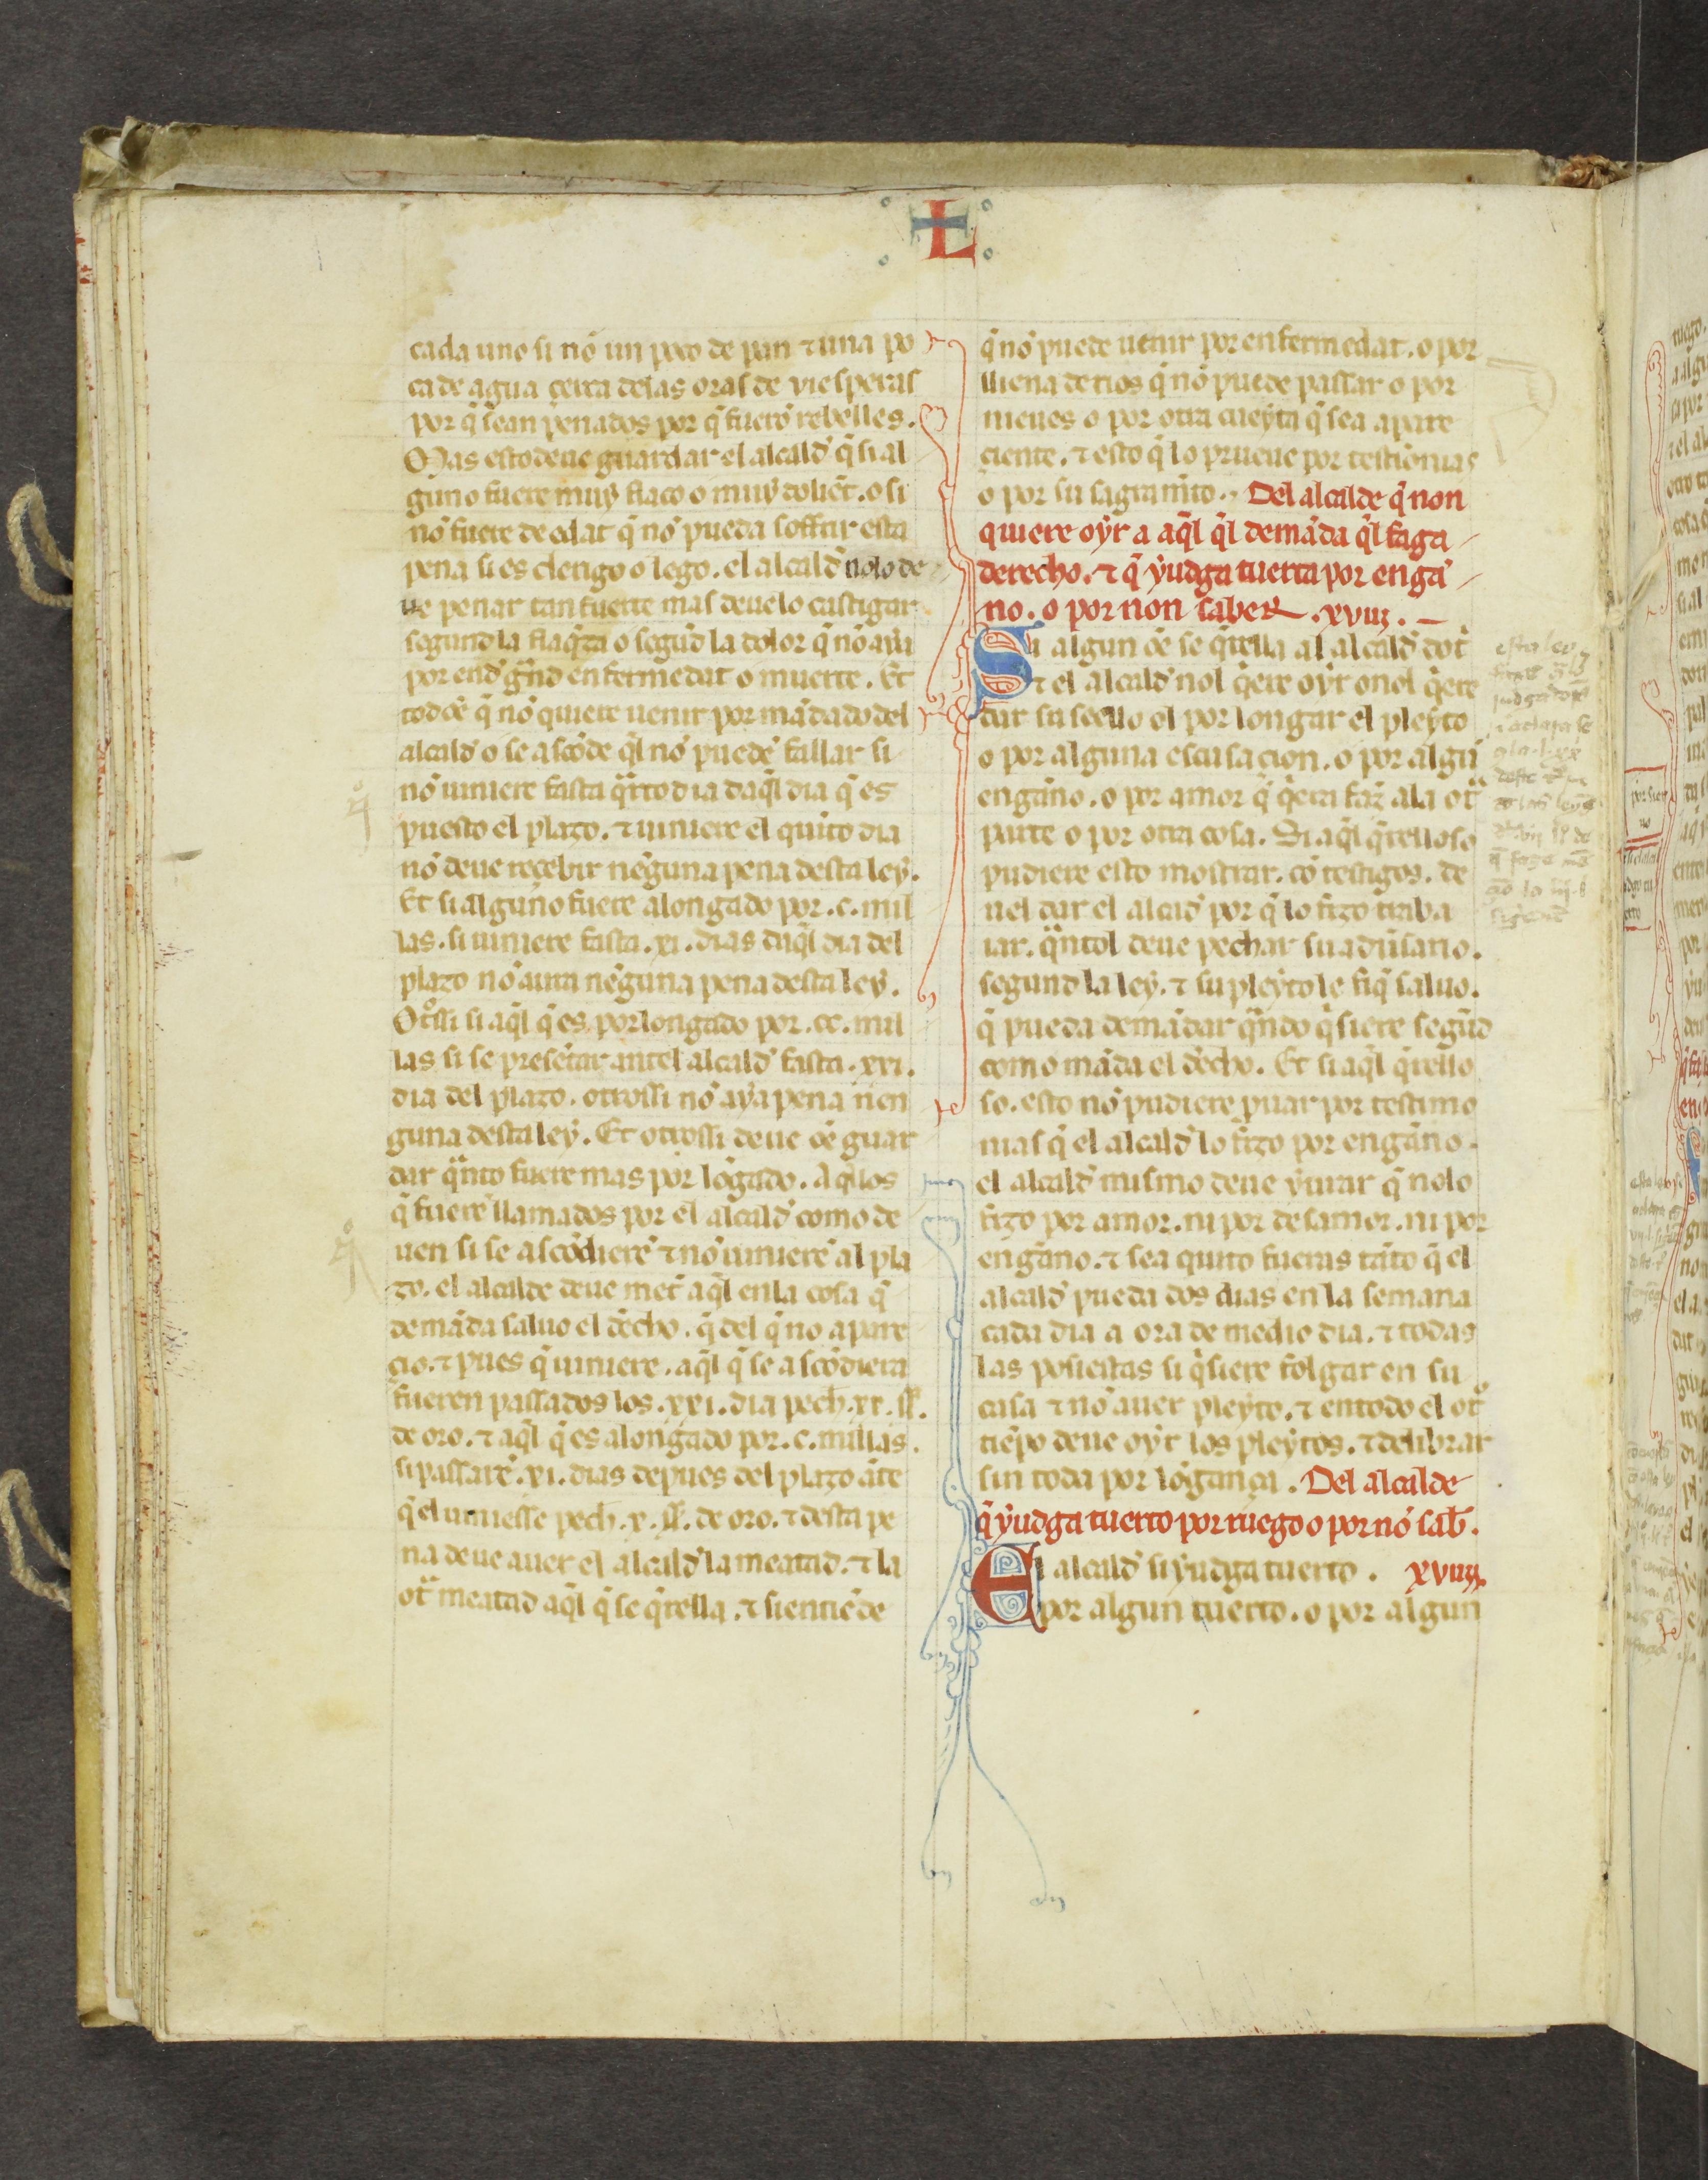 L
cada uno si nõ un poco de pan ⁊ una po
ca de agua çerca delas oras de viesperas
por q̃ sean penados por q̃ fuerõ rebelles.
Mas esto deue guardar el alcald̃ q̃ si al
guno fuere muy flaco o muy doliẽt. o si
nõ fuere de edat q̃ nõ pueda soffrir esta
pena si es clerigo o lego. el alcald̃ nolo de
ue penar tan fuerte mas deuelo castigar
segund la flaq̃za o segũd la dolor q̃ nõ aya
por end̃ grãd enfermedat o muerte. Et
todoẽ q̃ nõ quiere uenir por mãdado del
alcald̃ o se ascõde q̃l nõ puedẽ fallar si
nõ uiniere fasta q̃rto dia daq̃l dia q̃ es
puesto el plazo. ⁊ uiniere el quĩto dia
nõ deue reçebir nẽguna pena desta ley.
Et si alguno fuere alongado por .c. mil
las. si uiniere fasta .xi. dias daq̃l dia del
plazo nõ aura nẽguna pena desta ley.
Otrossi si aq̃l q̃ es porlongado por .cc. mil
las si se presẽtar antel alcald̃ fasta .xxi.
dia del plazo. otrossi nõ aya pena nen
guna desta ley. Et otrossi deue õe guar
dar q̃nto fuere mas por lõgado. Aq̃llos
q̃ fuerẽ llamados por el alcald̃ como de
uen si se ascõdierẽ ⁊ nõ uinierẽ al pla
zo. el alcalde deue met̃ aq̃l en la cosa q̃
demãda saluo el dẽcho. q̃ del q̃ no apare
çio. ⁊ pues q̃ uiniere. aq̃l q̃ se ascõdiera
fueren passados los .xxi. dia pech. xx. ss.
de oro. ⁊ aq̃l q̃ es alongado por .c. millas.
si passarẽ .xi. dias depues del plazo ãte
q̃ el uiniesse pech .x. ss. de oro. ⁊ desta pe
na deue auer el alcald̃ la meatad. ⁊ la
ot̃ meatad aq̃l q̃ se q̃rella. ⁊ si entiẽde
q̃ nõ puede uenir por enfermedat. o por
lliena de rios q̃ nõ puede passar o por
nieues o por otra cueyta q̃ sea apare
ciente. ⁊ esto q̃ lo prueue por testimonias
o por su sagramẽto. Del alcalde q̃ non
quiere oyr a aq̃l q̃l demãda q̃l faga
derecho. ⁊ q̃ yudga tuerta por enga
no. o por non saber. .xviij.
Si algun õe se q̃rella al alcald̃ dot̃
⁊ el alcald̃ nol q̃ere oyr o nol q̃ere
dar su seello ol por longar el pleyto
o por alguna escusacion. o por algũ
engãno. o por amor q̃ q̃era faz̃ ala ot̃
parte o por otra cosa. Si aq̃l q̃relloso
pudiere esto mostrar. cõ testigos. de
uel dar el alcad̃ por q̃ lo fizo traba
iar. q̃ntol deue pechar su adũsario.
segund la ley. ⁊ su pleyto le fiq̃ saluo.
q̃ pueda demãdar q̃ndo q̃siere segũd
como mãda el dẽcho. Et si aq̃l q̃rello
so. esto nõ pudiere puar por testimo
nias q̃ el alcald̃ lo fizo por engãno.
el alcald̃ mismo deue yurar q̃ nolo
fizo por amor. ni por desamor. ni por
engãno. ⁊ sea quito fueras tãto q̃ el
alcald̃ pueda dos dias en la semana
cada dia a ora de medio dia. ⁊ todas
las posiestas si q̃siere folgar en su
casa ⁊ nõ auer pleyto. ⁊ entodo el ot̃
tiẽpo deue oyr los pleytos. ⁊ delibrar
sin toda por lõgança. Del alcalde
q̃ yudga tuerto por ruego o por nõ sab̃.
El alcald̃ si yudga tuerto. xviiij.
por algun tuerto. o por algun